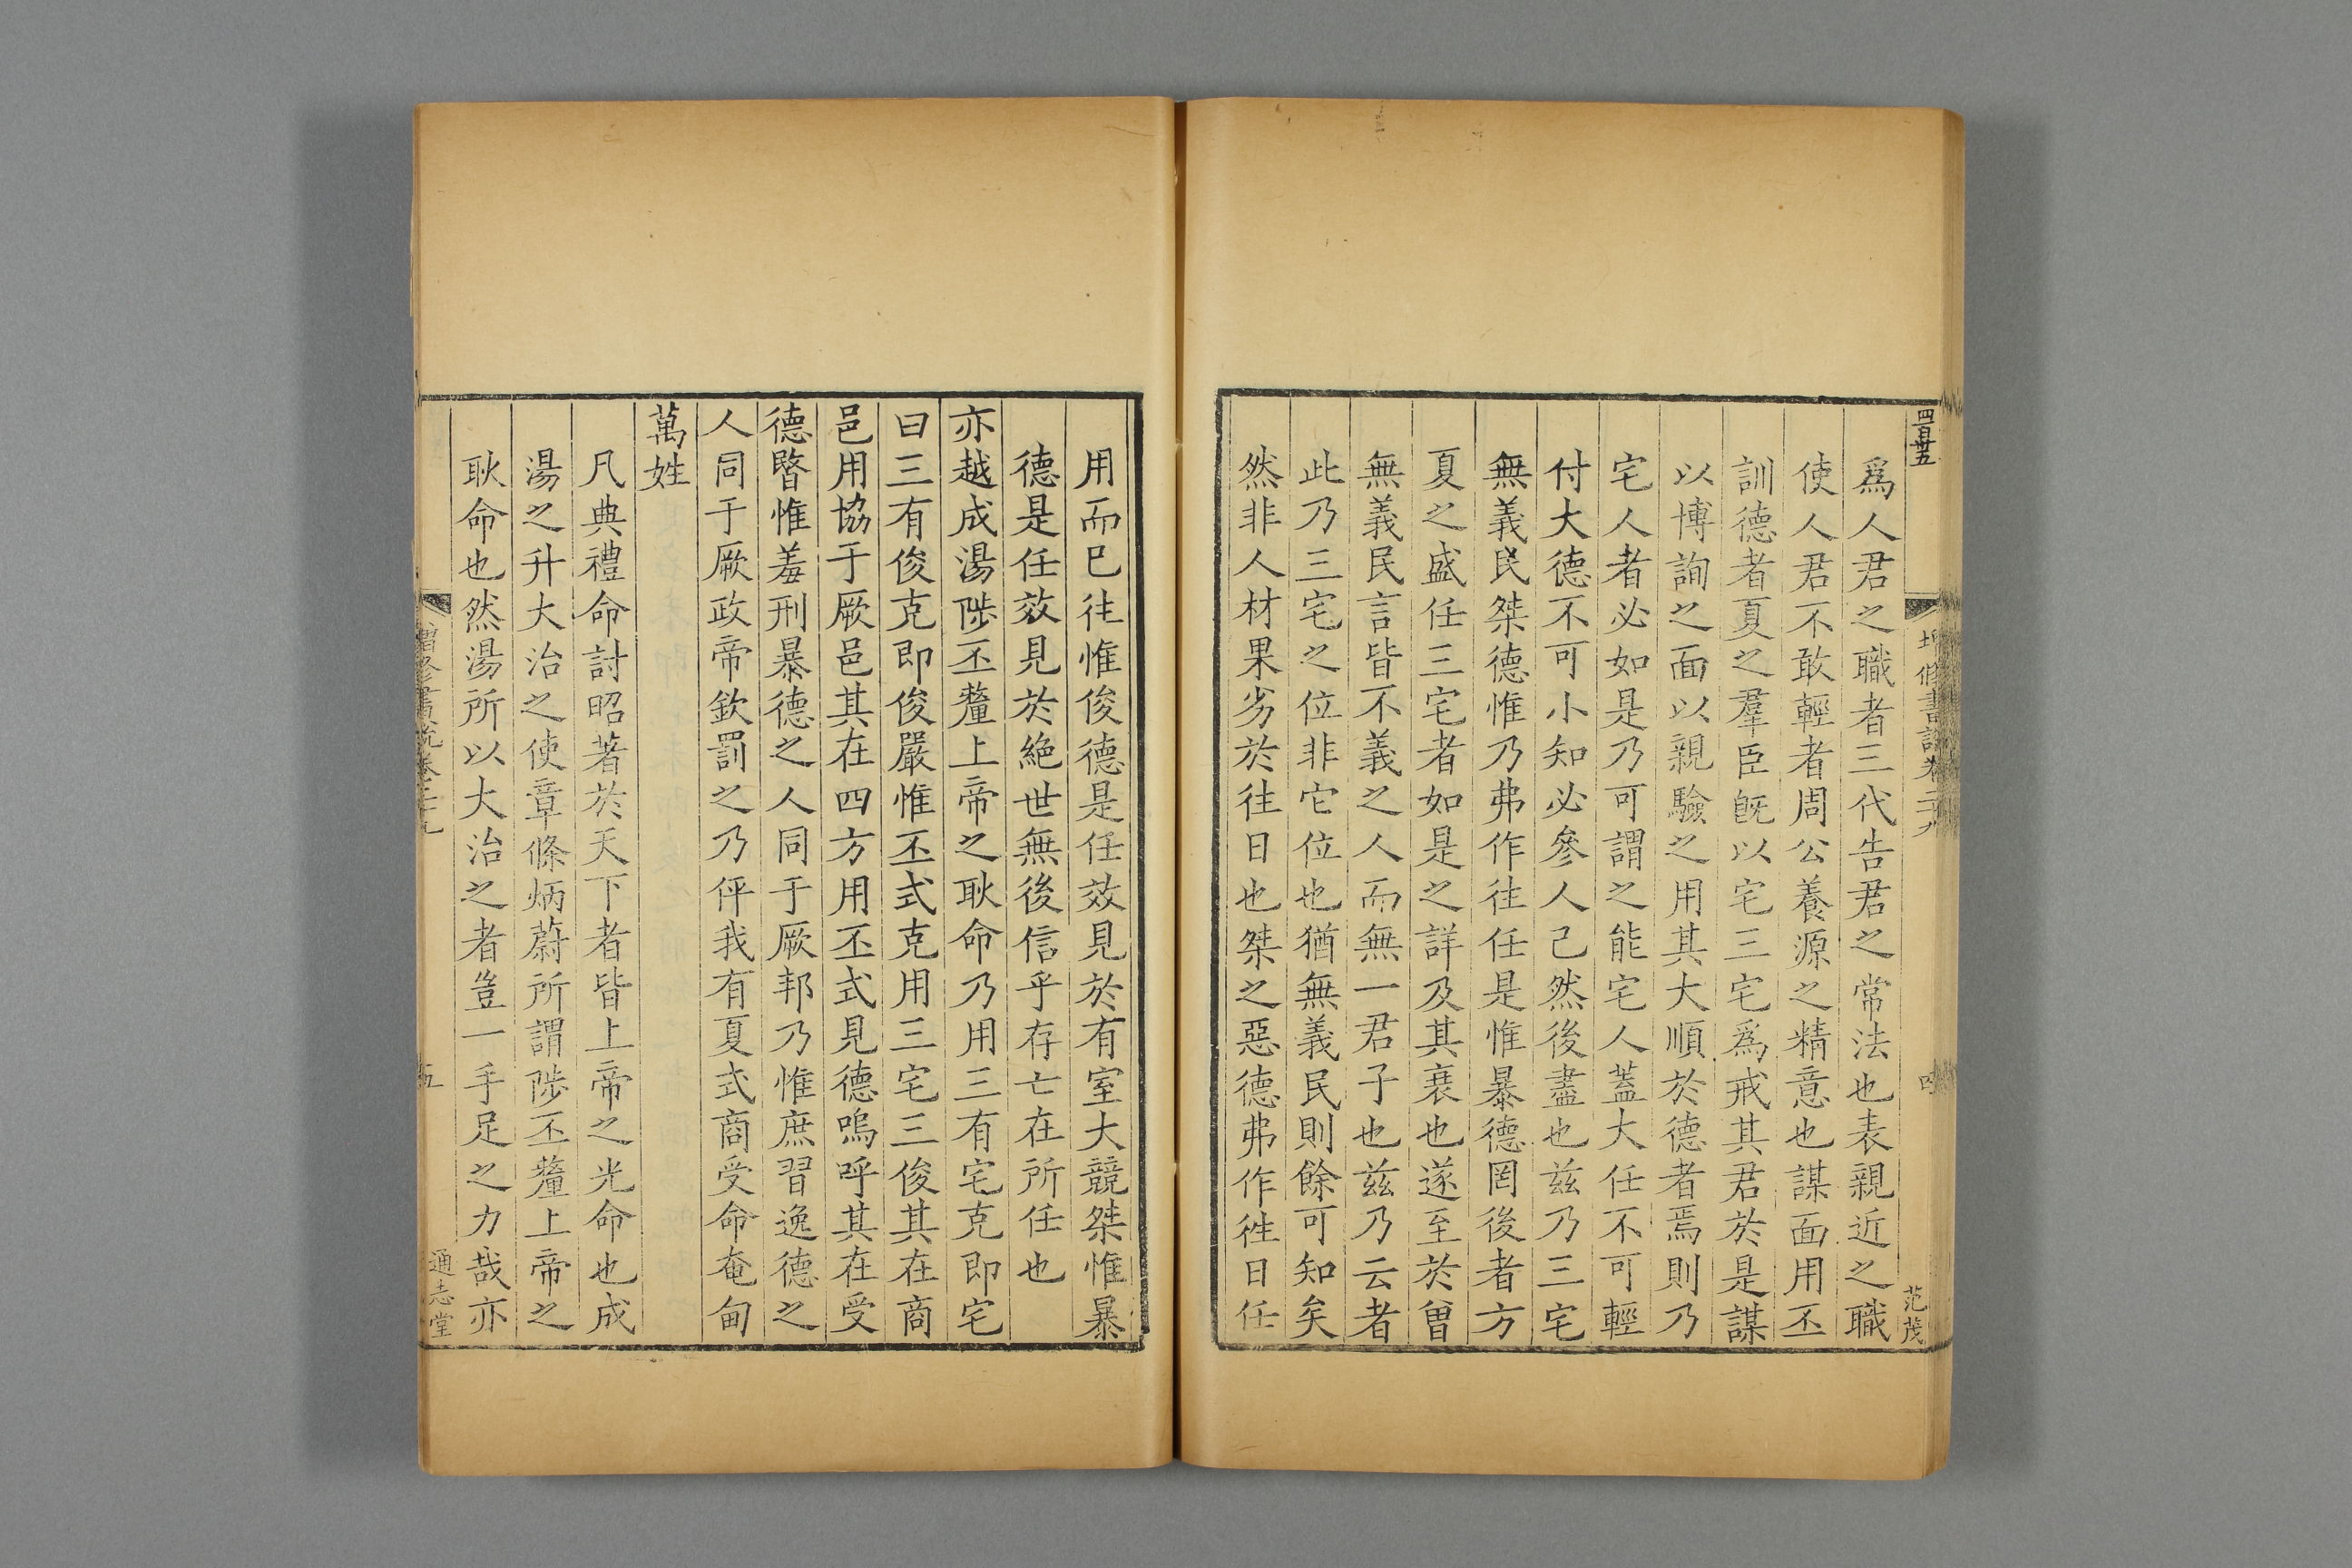 四百廿五
增修書說卷二十九
四
范茂
爲人君之職者三代告君之常法也表親近之職
使人君不敢輕者周公養源之精意也謀面用丕
訓德者夏之羣臣旣以宅三宅爲戒其君於是謀
以博詢之面以親驗之用其大順於德者焉則乃
宅人者必如是乃可謂之能宅人蓋大任不可輕
付大德不可小知必參人己然後盡也兹乃三宅
無義民桀德惟乃弗作往任是惟暴德罔後者方
夏之盛任三宅者如是之詳及其衰也遂至於曾
無義民言皆不義之人而無一君子也兹乃云者
此乃三宅之位非它位也猶無義民則餘可知矣
然非人材果劣於往日也桀之惡德弗作徃日任
用而已往惟俊德是任效見於有室大競桀惟暴
德是任效見於絶世無後信乎存亡在所任也
亦越成湯陟丕釐上帝之耿命乃用三有宅克即宅
曰三有俊克即俊嚴惟丕式克用三宅三俊其在商
邑用協于厥邑其在四方用丕式見德嗚呼其在受
德暋惟羞刑暴德之人同于厥邦乃惟庶習逸德之
人同于厥政帝欽罰之乃伻我有夏式商受命奄甸
萬姓
凡典禮命討昭著於天下者皆上帝之光命也成
湯之升大治之使章條炳蔚所謂陟丕釐上帝之
耿命也然湯所以大治之者豈一手足之力哉亦
增修書說卷二十九
五
通志堂